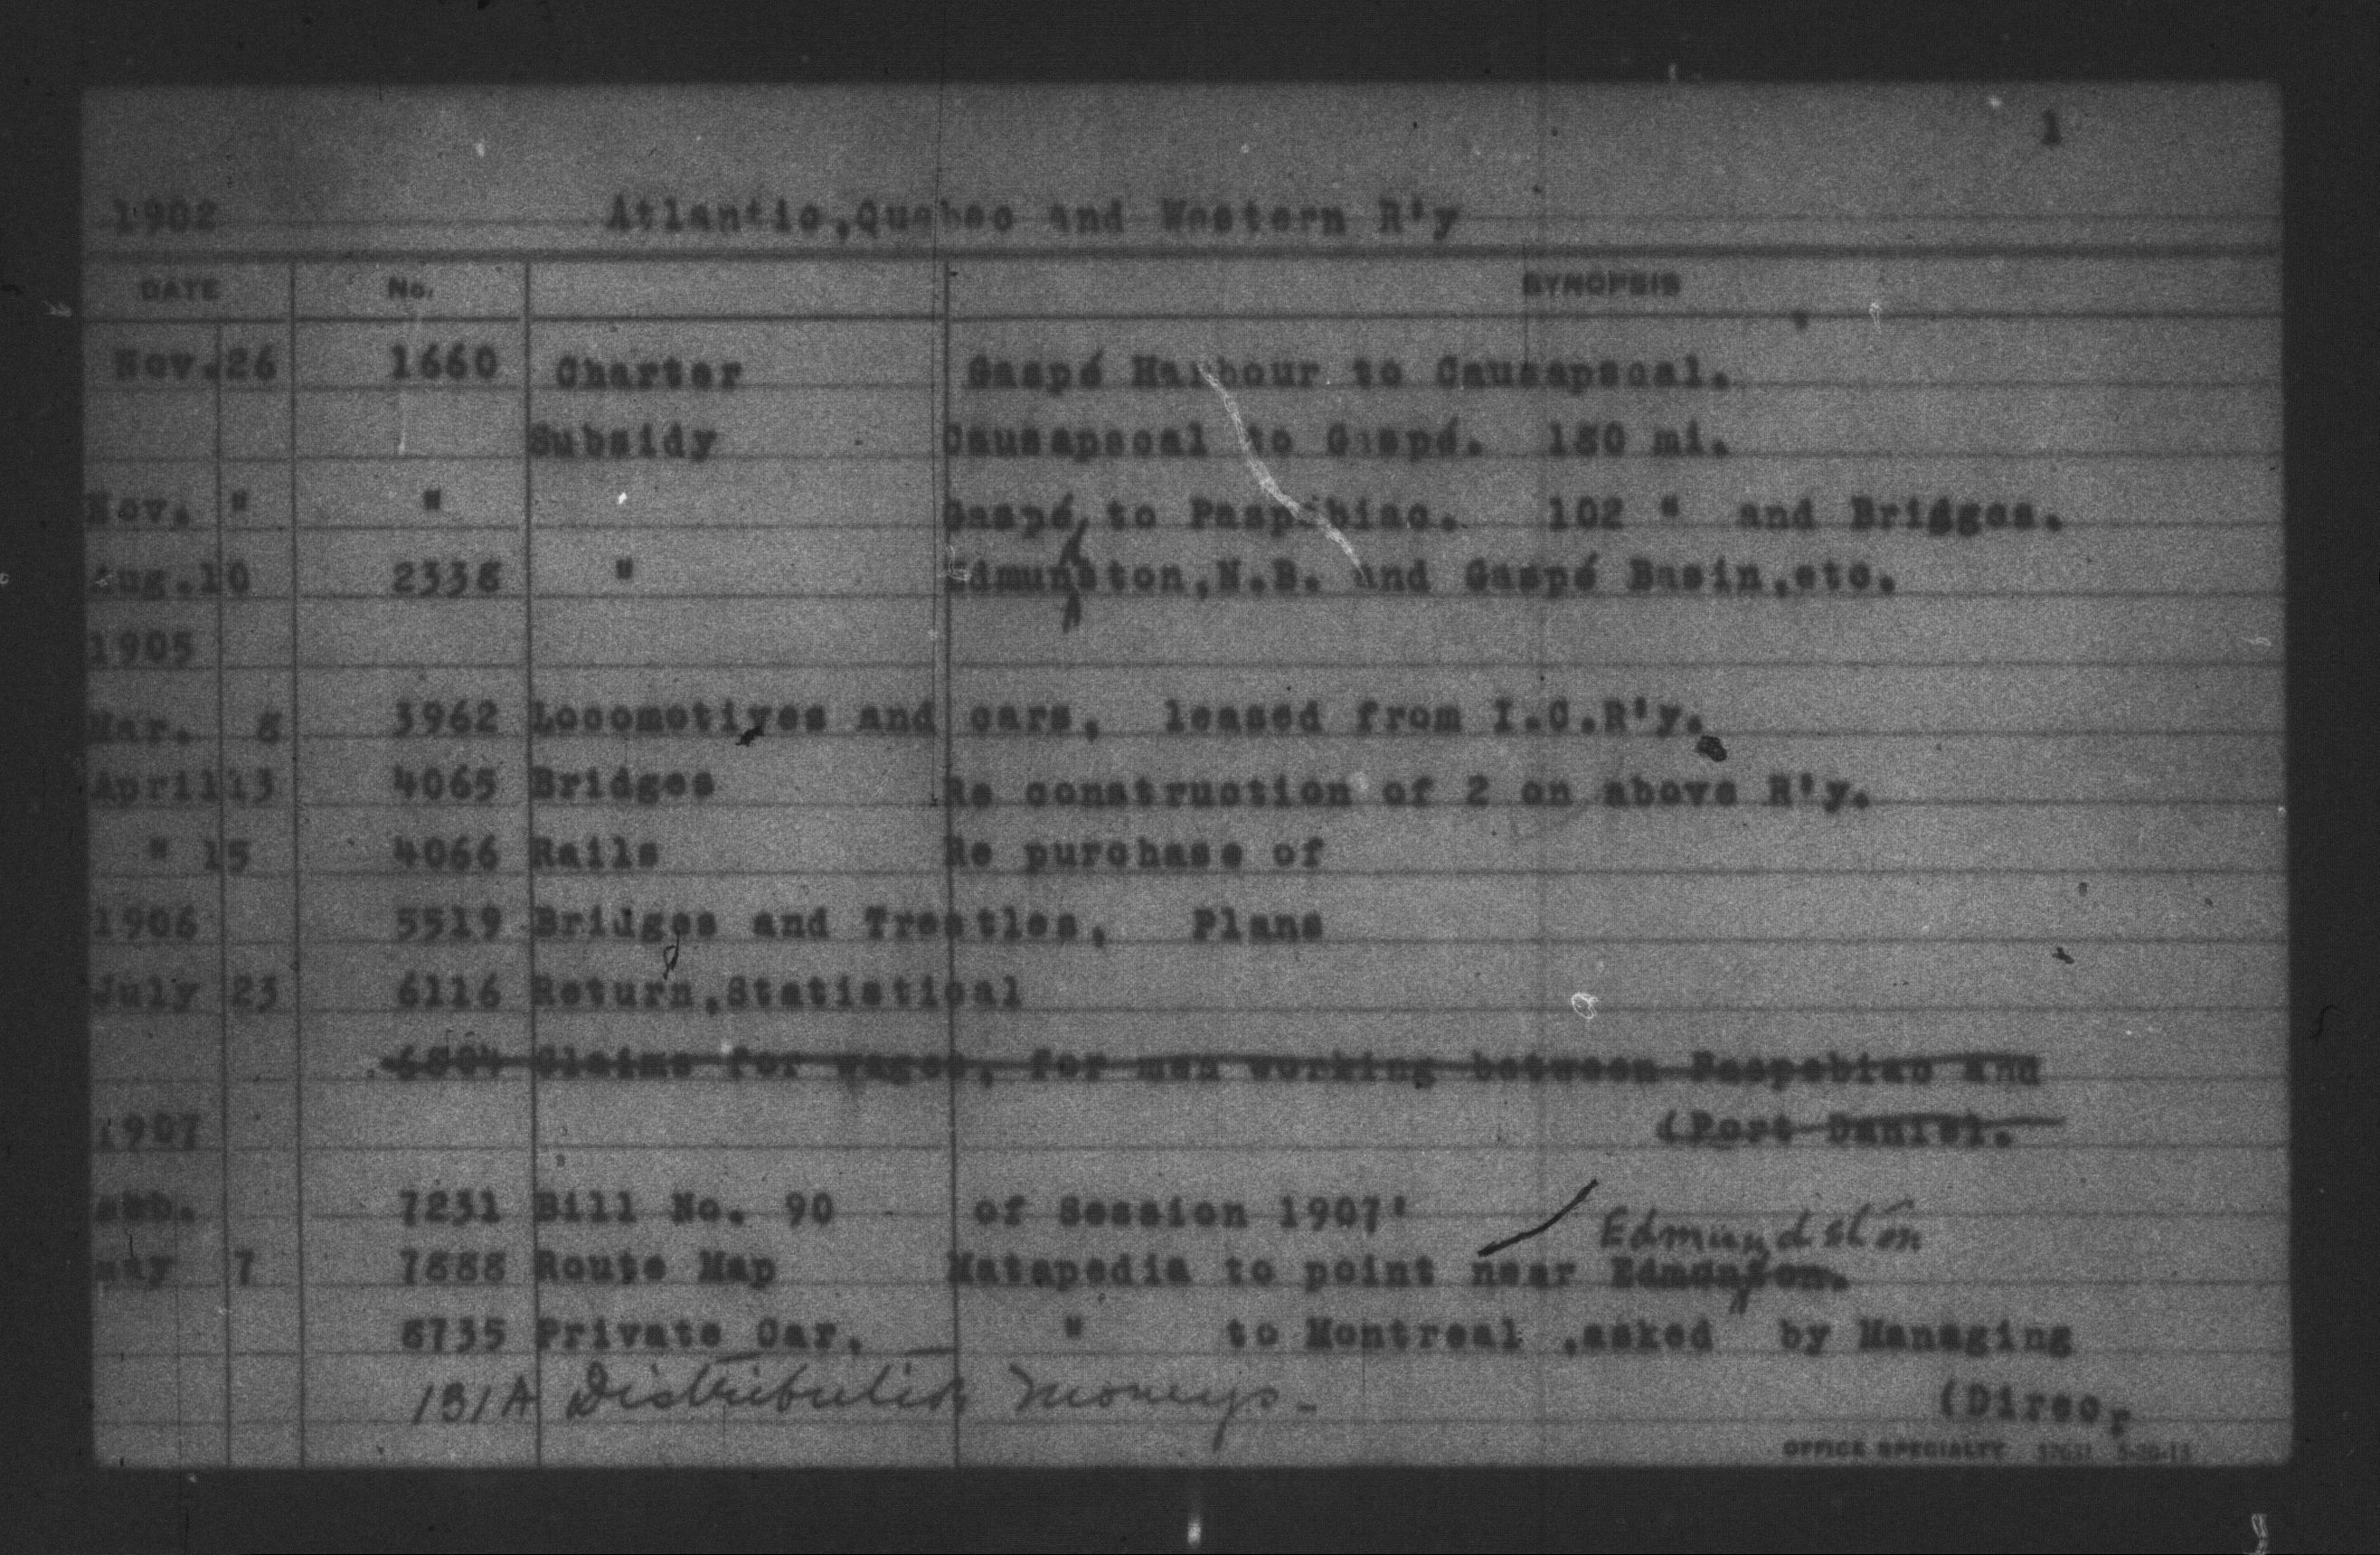 1
1902 Atlantic,Quebec and Western R'y
DATE No. SYNOPSIS
Nov. 26 1660 Charter Gaspé Harbour to Causapscal.
Subsidy Causapscal to Gaspé. 180 mi.
Nov. " " Gaspé to Paspébiac. 102 " and Bridges.
Aug.10 2338 " Edmunston,N.B. and Gaspé Basin,etc.
1905
Mar. 8 3962 Locomotives and cars, leased from I.C.R'y.
April 13 4065 Bridges Re construction of 2 on above R'y.
" 15 4066 Rails Re purchase of
1906 5519 Bridges and Trestles, Plans
July 23 6116 Return,Statistical
6804 Claims for wages, for men working between Paspebiac and
1907 (Port Daniel.
7231 Bill No. 90 of Session 1907'
Edmundston
May 7 7888 Route Map Matapedia to point near Edmonson.
8735 Private Car, " to Montreal ,asked by Managing
131A Distribution Moneys - (Direc,
OFFICE SPECIALTY